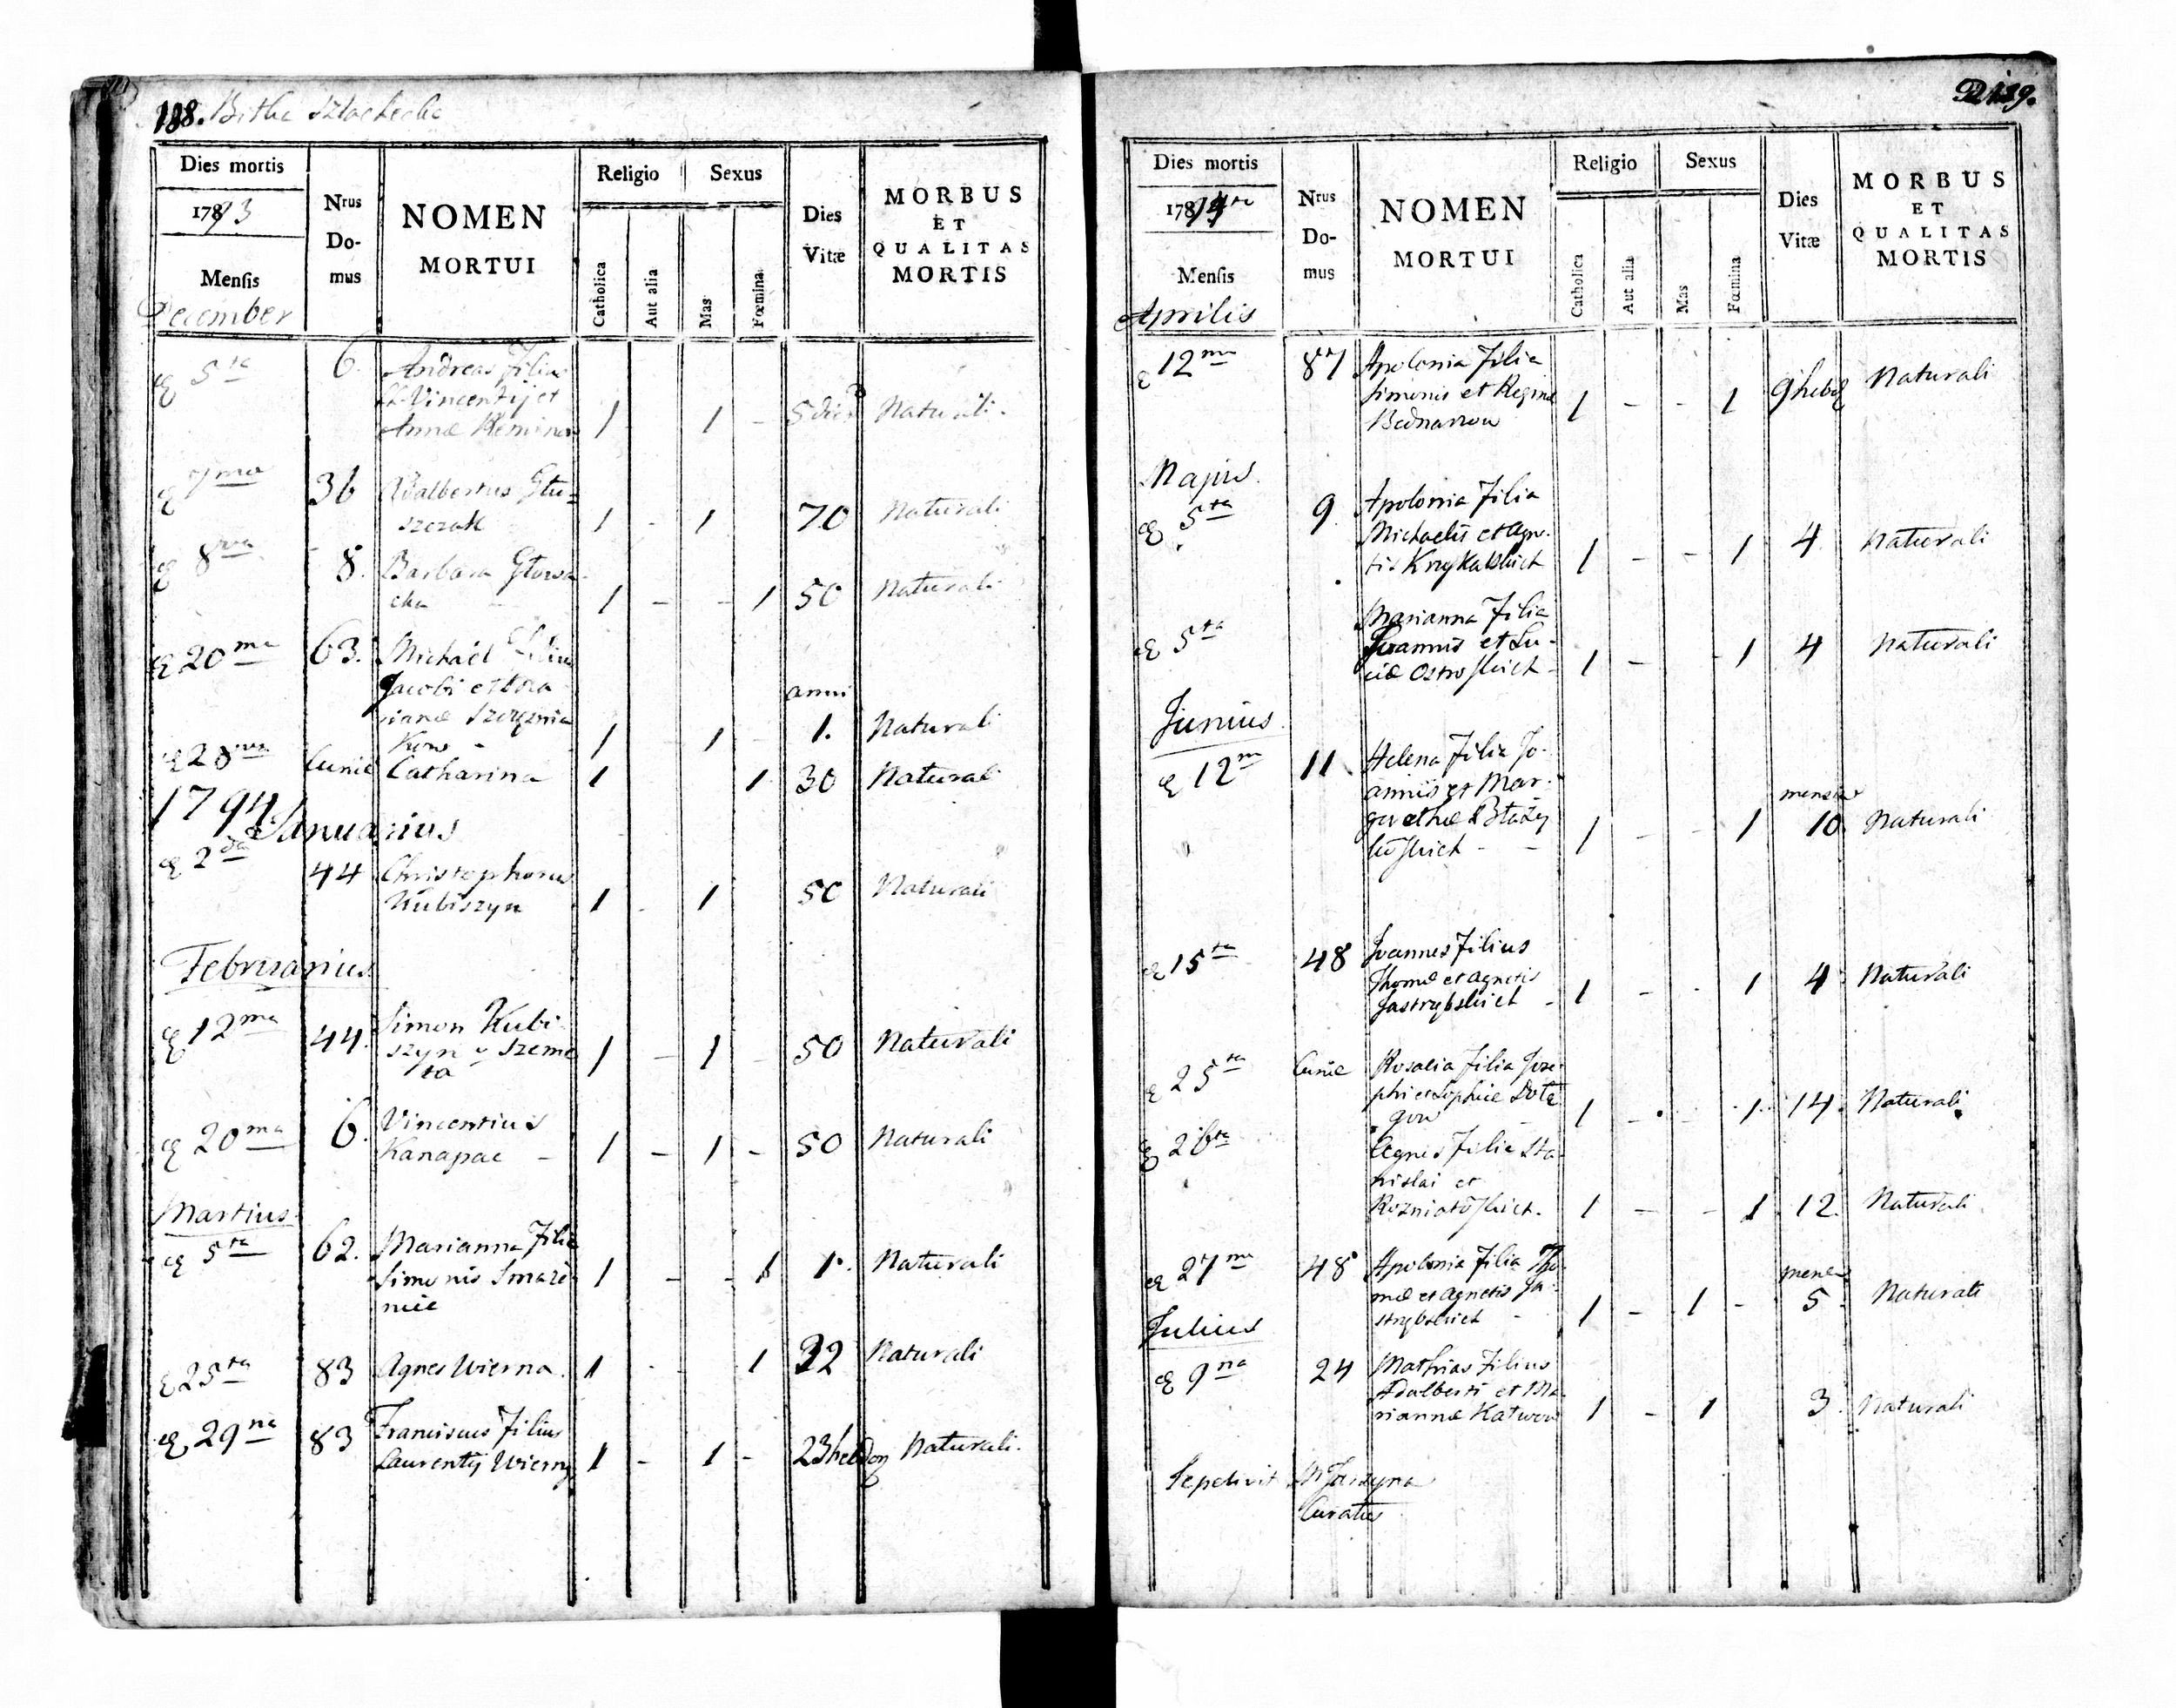 188.
Dies mortis
1793
Mensis
December
Nrus
Do-
mus
NOMEN
MORTUI
Religio
Catholica
Aut alia
Sexus
Mas
Fœmina
Dies
Vitæ
MORBUS
ET
QUALITAS
MORTIS
5ta 6. Andreas Filius
Vincentij et
Annæ 1 1 - 5 Naturali.
7ma 36 Adalbertus Glu-
szczak 1 - 1 70 Naturali
8va 8. Barbara
cka 1 - - 1 50 Naturali
20ma 63. Michael Filius
Jacobi et Ma
rianæ
kow - anni
1 1 - 1. Naturali
28va Cunie Catharina 1 1 30 Naturali
1794
Januarius
2da 44 Christophorus
Kubiszyn 1 - 1 50 Naturali
Februarius
12ma 44. Simon Kubi
szyn v Szeme
ta 1 - 1 - 50 Naturali
20ma 6. Vincentius
Kanapac - 1 - 1 - 50 Naturali
Martius
5ta 62. Marianna Filia
Simonis
1 - - 1 1. Naturali
25ta 83 Agnes Wierna. 1 - - 1 32 Naturali
29na 83 Franciscus Filius
Laurentij Wierny 1 - 1 - 23 hebdo Naturali.
Dies mortis
Mensis
Aprilis
Nrus
Do-
mus
NOMEN
MORTUI
Religio
Catholica
Aut alia
Sexus
Mas
Fœmina
Dies
Vitæ
MORBUS
ET
QUALITAS
MORTIS
12ma 87 Apolonia Filia
Simonis et Reginæ
Bednarzow 1 - - 1 9 hebd Naturali
Majus.
5ta 9. Apolonia Filia
Michaelis et Agne-
tis 1 - - 1 4 Naturali
5ta Marianna Filia
Joannis et Lu-
ciæ Ostroskich - 1 - - 1 4 Naturali
Junius.
12ma 11 Helena Filia Jo-
annis et Mar-
garethæ
1 - - 1 mensium
10 Naturali
15ta 48 Joannes Filius
Thomæ et Agnetis
Jastrybskich - 1 - - 1 4 Naturali
25ta Cunie Rosalia Filia Jose-
phi et Sophiæ Dołę
gow 1 - - 1. 14. Naturali
26ta Agnes Filia Sta-
nislai et
Rozniatoskich. 1 - - 1 12 Naturali
27ma 48 Apolonia Filia Tho-
mæ et Agnetis Ja-
strybskich - 1 - 1 - 5 Naturali
Julius
9na 24 Mathias Filius
Adalberti et Ma-
riannæ 1 - 1 3 Naturali
Sepelivit
Curatus